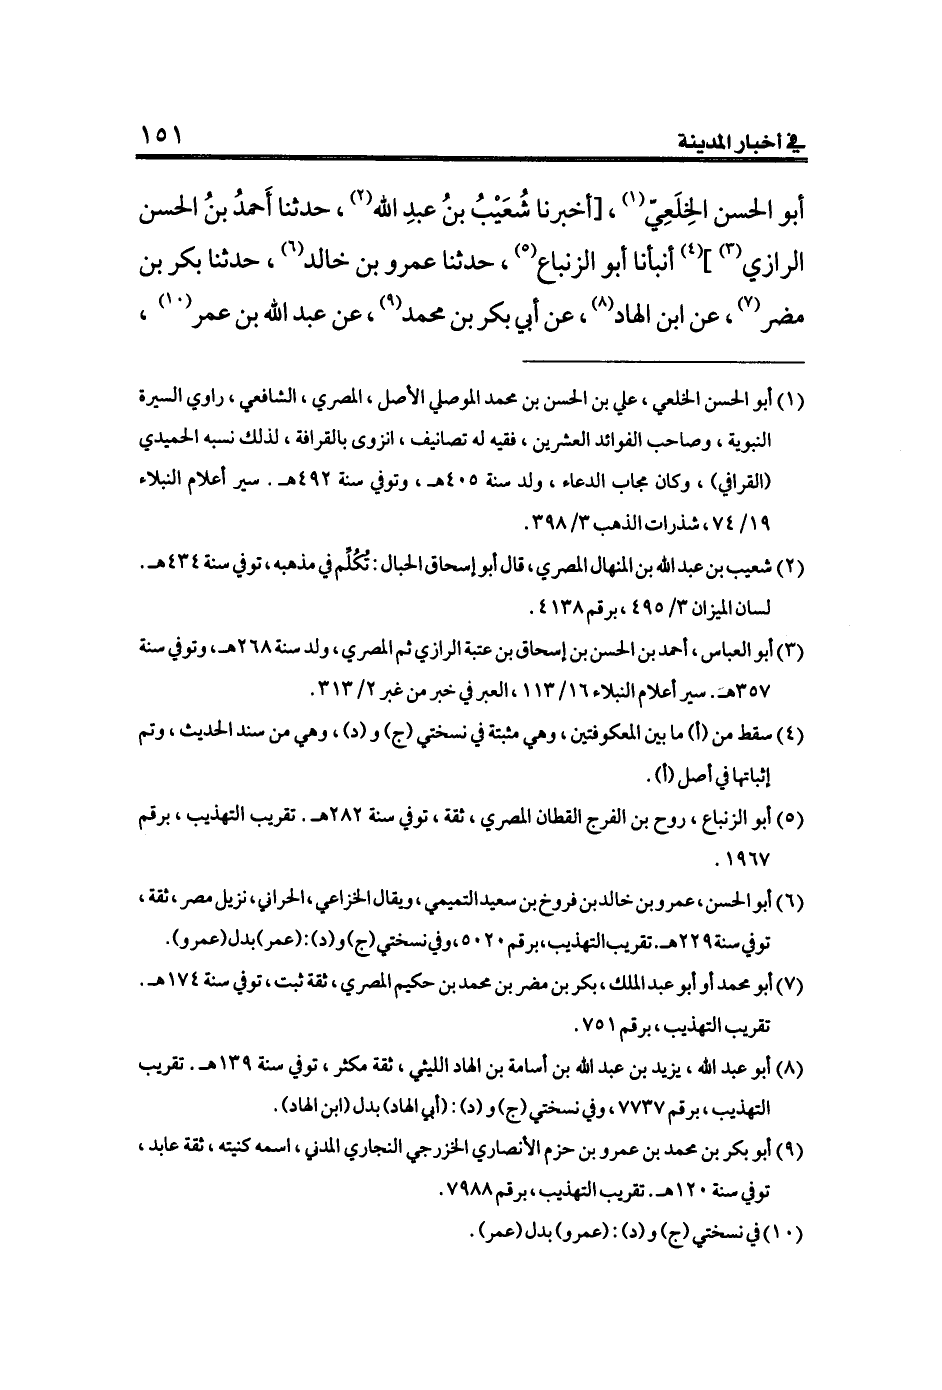 في أخبار المدينة ١٥١
أبو الحسن الخِلَعِيّ(١) ، [أخبرنا شُعَيْبُ بنُ عبدِ الله(٢) ، حدثنا أَحمدُ بنُ الحسن
الرازي(٣) ](٤) أنبأنا أبو الزنباع(٥) ، حدثنا عمرو بن خالد(٦) ، حدثنا بكر بن
مضر(٧) ، عن ابن الهاد(٨) ، عن أبي بكر بن محمد(٩) ، عن عبد الله بن عمر(١٠) ،
(١) أبو الحسن الخلعي ، علي بن الحسن بن محمد الموصلي الأصل ، المصري ، الشافعي ، راوي السيرة
النبوية ، وصاحب الفوائد العشرين ، فقيه له تصانيف ، انزوى بالقرافة ، لذلك نسبه الحميدي
(القرافي) ، وكان مجاب الدعاء ، ولد سنة ٤٠٥هـ ، وتوفي سنة ٤٩٢هـ . سير أعلام النبلاء
١٩/ ٧٤ ، شذرات الذهب ٣/ ٣٩٨ .
(٢) شعيب بن عبد الله بن المنهال المصري ، قال أبو إسحاق الحبال : تُكُلِّم في مذهبه ، توفي سنة ٤٣٤هـ .
لسان الميزان ٣/ ٤٩٥ ، برقم ٤١٣٨ .
(٣) أبو العباس ، أحمد بن الحسن بن إسحاق بن عتبة الرازي ثم المصري ، ولد سنة ٢٦٨هـ ، وتوفي سنة
٣٥٧هـ . سير أعلام النبلاء ١٦/ ١١٣ ، العبر في خبر من غبر ٢/ ٣١٣ .
(٤) سقط من (أ) ما بين المعكوفتين ، وهي مثبتة في نسختي (ج) و (د) ، وهي من سند الحديث ، وتم
إثباتها في أصل (أ) .
(٥) أبو الزنباع ، روح بن الفرج القطان المصري ، ثقة ، توفي سنة ٢٨٢هـ . تقريب التهذيب ، برقم
١٩٦٧ .
(٦) أبو الحسن ، عمرو بن خالد بن فروخ بن سعيد التميمي ، ويقال الخزاعي ، الحراني ، نزيل مصر ، ثقة ،
توفي سنة ٢٢٩هـ . تقريب التهذيب ، برقم ٥٠٢٠ ، وفي نسختي (ج) و (د) : (عمر) بدل (عمرو) .
(٧) أبو محمد أو أبو عبد الملك ، بكر بن مضر بن محمد بن حكيم المصري ، ثقة ثبت ، توفي سنة ١٧٤هـ .
تقريب التهذيب ، برقم ٧٥١ .
(٨) أبو عبد الله ، يزيد بن عبد الله بن أسامة بن الهاد الليثي ، ثقة مكثر ، توفي سنة ١٣٩هـ . تقريب
التهذيب ، برقم ٧٧٣٧ ، وفي نسختي (ج) و (د) : (أبي الهاد) بدل (ابن الهاد) .
(٩) أبو بكر بن محمد بن عمرو بن حزم الأنصاري الخزرجي النجاري المدني ، اسمه كنيته ، ثقة عابد ،
توفي سنة ١٢٠هـ . تقريب التهذيب ، برقم ٧٩٨٨ .
(١٠) في نسختي (ج) و (د) : (عمرو) بدل (عمر) .